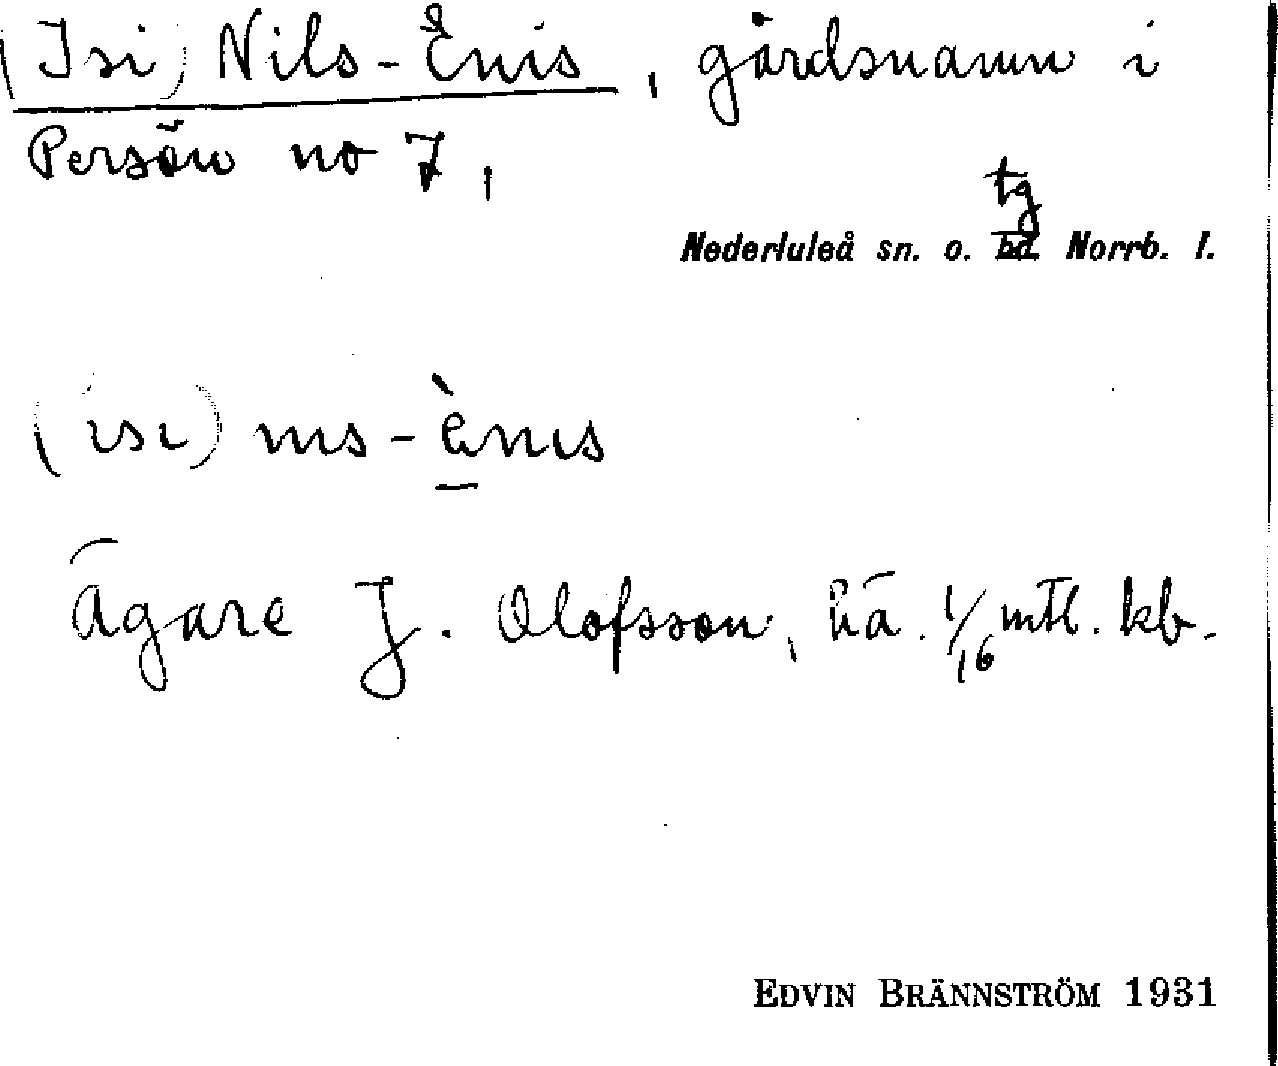 (Isi) Nils-Enis, gårdsnamn i
Persön no 7,
tg
Nederluleå sn. o. hd. Norrb. l.
(ısı) nıs-ènıs
Ägare J. Olofsson, hä. 1/16 mtl. kb.
EDVIN BRÄNNSTRÖM 1931